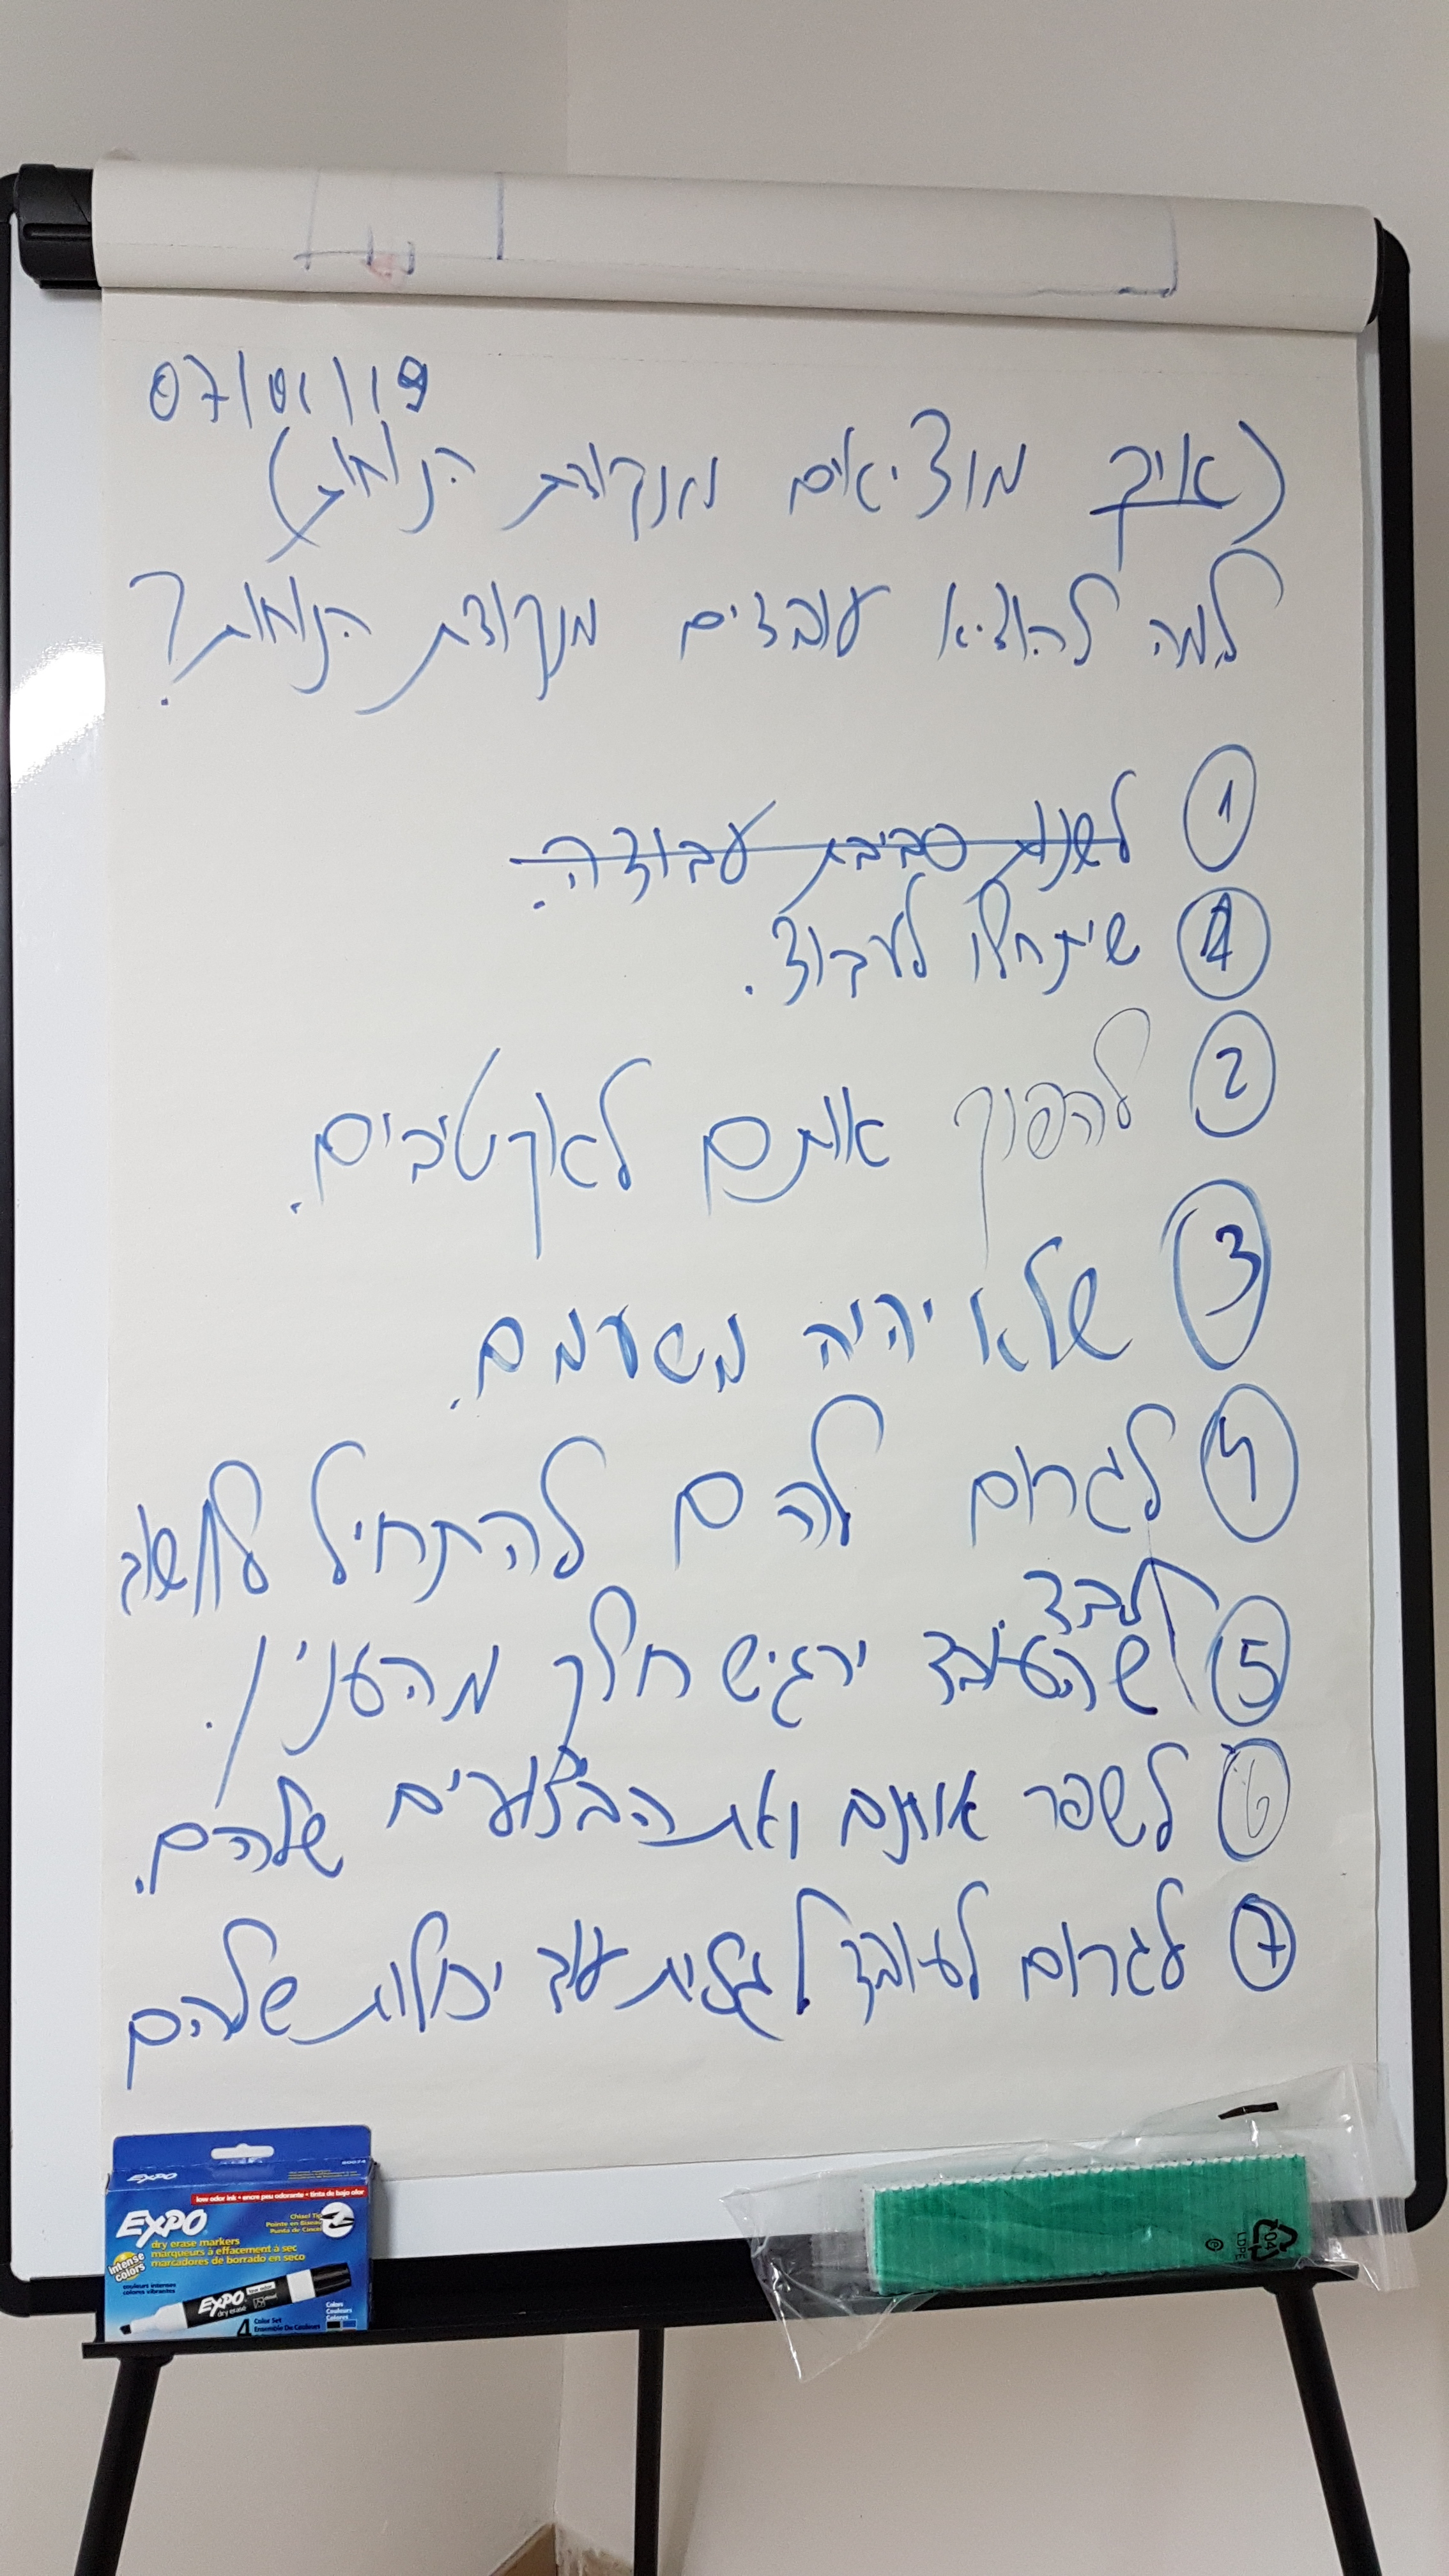 07/01/19
(איך מוציאים מנקודת הנוחות)
למה להוציא עובדים מנקודת הנוחות?
① לשנות סביבת עבודה.
① שיתחילו לעבוד.
② להפוך אותם לאקטיבים.
③ שלא יהיה משעמם.
④ לגרום להם להתחיל לחשוב
לבד.
⑤ שהעובד ירגיש חלק מהענין.
⑥ לשפר אותם ואת הביצועים שלהם.
⑦ לגרום לעובד לגלות עוד יכולות שלהם
EXPO
low odor ink • encre peu odorante • tinta de bajo olor
EXPO
Chisel Tip
Pointe en Biseau
Punta de Cincel
dry erase markers
marqueurs à effacement à sec
marcadores de borrado en seco
intense colors
couleurs intenses
colores vibrantes
EXPO
dry erase
4 Color Set
Ensemble De Couleurs
Colors
Couleurs
Colores
04
LDPE